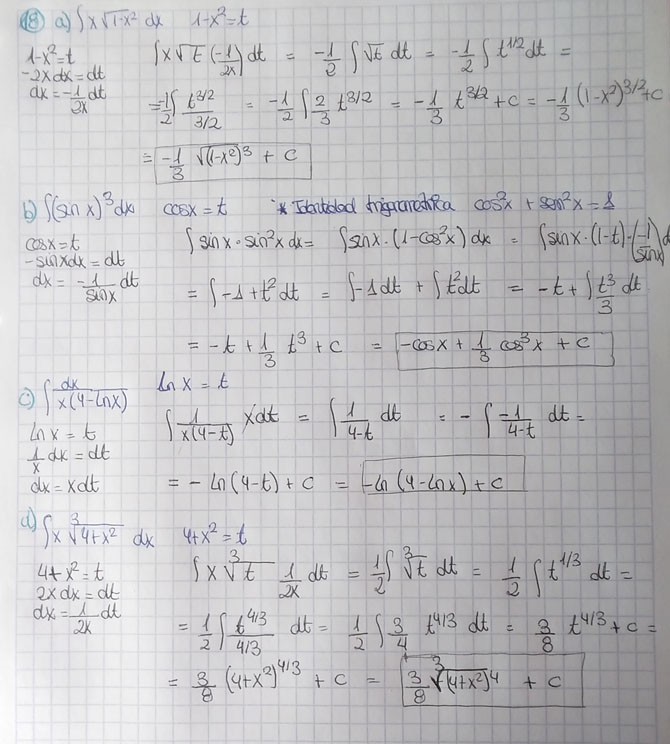 18 a) ∫x√1-x² dx   1-x²=t
1-x²=t
-2xdx=dt
dx=-1/2x dt
∫x√t (-1/2x)dt = -1/2 ∫√t dt = -1/2 ∫t^1/2 dt =
=-1/2 ∫ t^3/2 / 3/2 = -1/2 ∫ 2/3 t^3/2 = -1/3 t^3/2 + c = -1/3 (1-x²)^3/2 + C
= -1/3 √(1-x²)³ + C
b) ∫(sin x)³dx   cosx=t   * Identidad trigonométrica   cos²x + sen²x = 1
cosx=t
-sinxdx=dt
dx= -1/sinx dt
∫sinx·sin²x dx= ∫sinx·(1-cos²x)dx = ∫sinx·(1-t)·(-1/sinx)d
= ∫-1+t² dt = ∫-1dt + ∫t²dt = -t+∫t³/3 dt
= -t+1/3 t³ + c = -cosx + 1/3 cos³x + c
c) ∫dx/x(4-lnx)   ln x = t
ln x = t
1/x dx = dt
dx = xdt
∫1/x(4-t) xdt = ∫1/4-t dt = -∫-1/4-t dt =
= - ln(4-t) + c = -ln(4-lnx)+c
d) ∫x ³√4+x² dx   4+x²=t
4+x²=t
2xdx=dt
dx=1/2x dt
∫x ³√t 1/2x dt = 1/2 ∫³√t dt = 1/2 ∫t^1/3 dt =
= 1/2 ∫ t^4/3 / 4/3 dt = 1/2 ∫ 3/4 t^4/3 dt = 3/8 t^4/3 + c =
= 3/8 (4+x²)^4/3 + c = 3/8 ³√(4+x²)⁴ + c